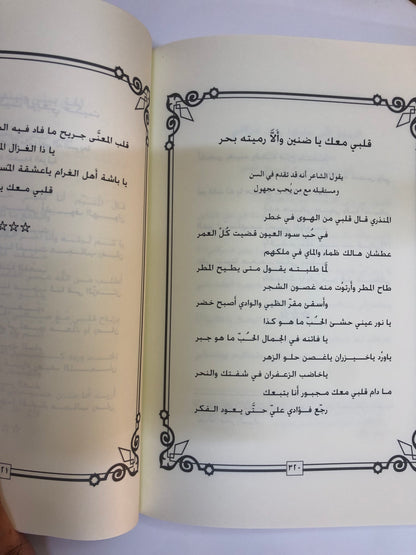 قلبي معك يا ضنين وألَّا رميته بحر
يقول الشاعر أنه قد تقدم في السن
ومستقبله مع من يُحب مجهول
المنذري قال قلبي من الهوى في خطر
في حُب سود العيون قضيت كُلْ العمر
عطشان هالك ظماء والماي في ملكهم
لمَّا طلبته يقول متى يطيح المطر
طاح المطر وأرتوْت منه غصون الشجر
وأسقىْ مقرّ الظبي والوادي أصبح خضر
يا نور عيني حشىْ الحُبّ ما هو كذا
يا فاتنه في الجمال الحُبّ ما هو جبر
ياورُد ياخيزران ياغصن حلو الزهر
ياخاضب الزعفران في شفتك والنحر
ما دام قلبي معك مجبور أنا بتبعك
رجّع فؤادي عليّ حتَّى يعود الفكر
٣٢٠
قلب المعنَّى جريح ما فاد فيه
يا ذا الغزال
يا باشة أهل الغرام ياعشقة
قلبي معك
☆☆☆